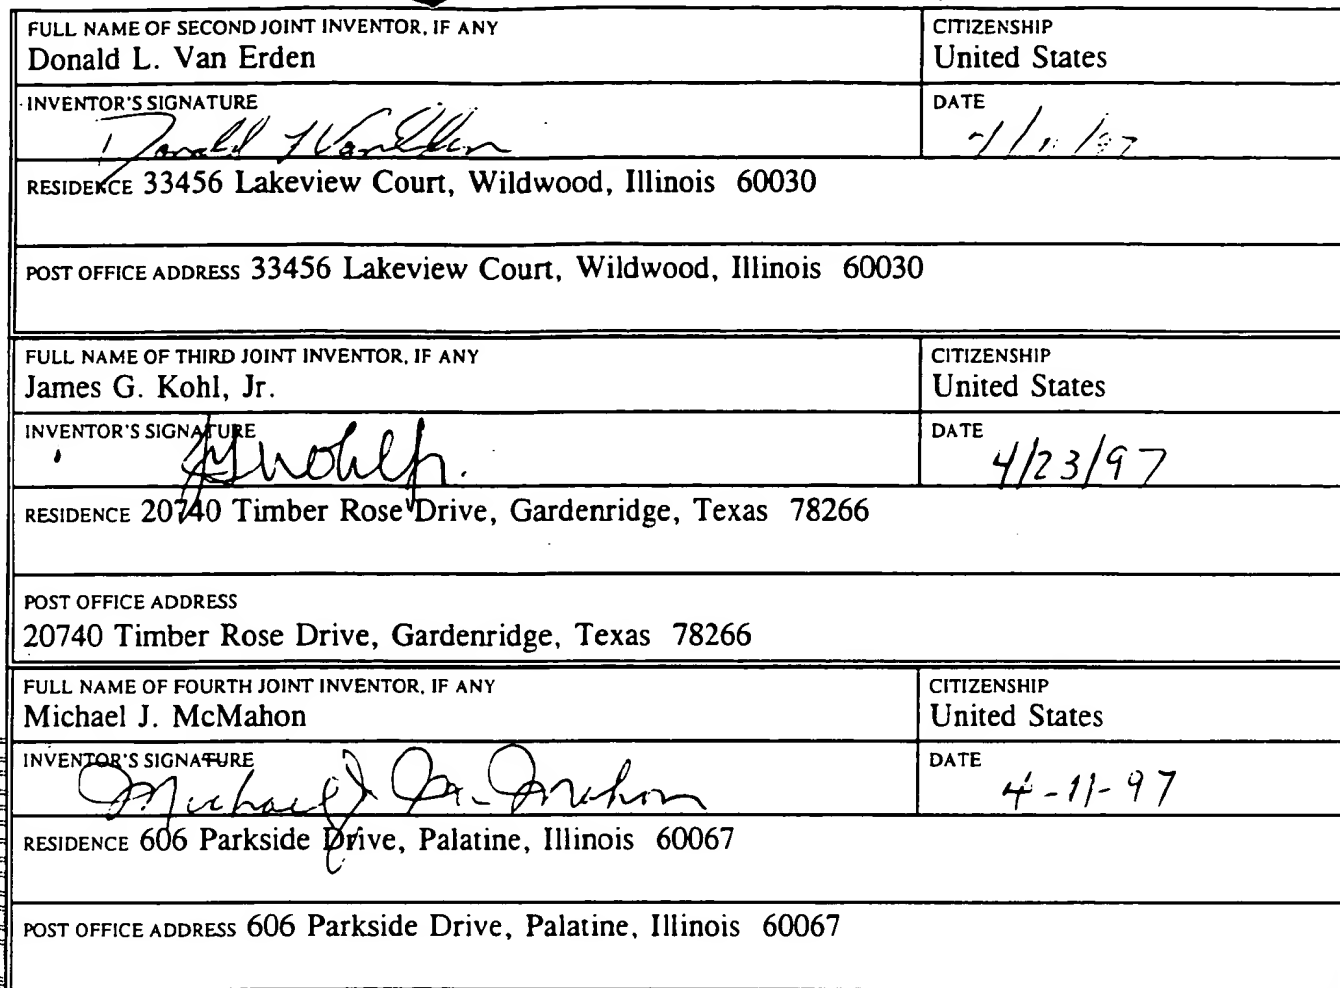 FULL NAME OF SECOND JOINT INVENTOR, IF ANY
Donald L. Van Erden
CITIZENSHIP
United States
INVENTOR'S SIGNATURE
Donald L Van Erden
DATE
RESIDENCE 33456 Lakeview Court, Wildwood, Illinois 60030
POST OFFICE ADDRESS 33456 Lakeview Court, Wildwood, Illinois 60030
FULL NAME OF THIRD JOINT INVENTOR, IF ANY
James G. Kohl, Jr.
CITIZENSHIP
United States
INVENTOR'S SIGNATURE
JGKohl Jr.
DATE
4/23/97
RESIDENCE 20740 Timber Rose Drive, Gardenridge, Texas 78266
POST OFFICE ADDRESS
20740 Timber Rose Drive, Gardenridge, Texas 78266
FULL NAME OF FOURTH JOINT INVENTOR, IF ANY
Michael J. McMahon
CITIZENSHIP
United States
INVENTOR'S SIGNATURE
Michael J. McMahon
DATE
4-11-97
RESIDENCE 606 Parkside Drive, Palatine, Illinois 60067
POST OFFICE ADDRESS 606 Parkside Drive, Palatine, Illinois 60067